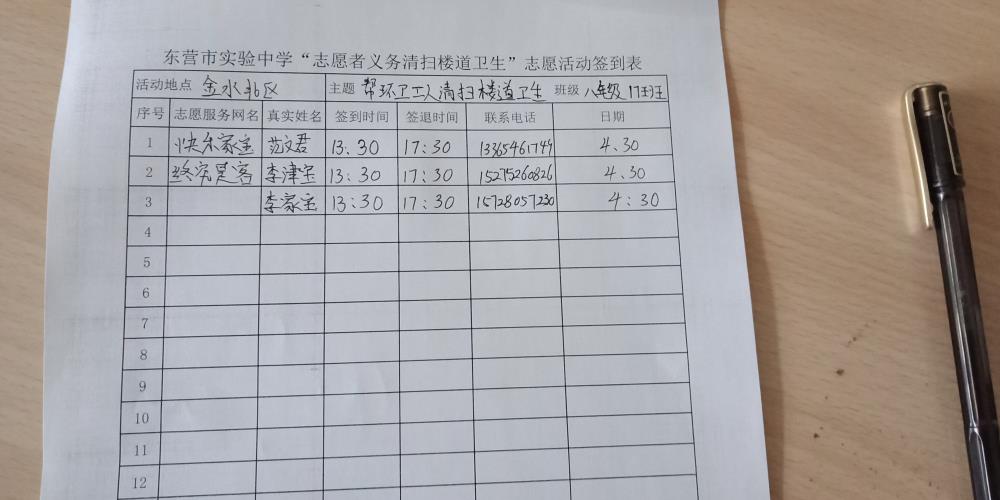 东营市实验中学“志愿者义务清扫楼道卫生”志愿活动签到表
活动地点 金水北区 主题 帮环卫工人清扫楼道卫生 班级 八年级17班
序号 志愿服务网名 真实姓名 签到时间 签退时间 联系电话 日期
1 快乐家宝 范文君 13:30 17:30 13365461749 4.30
2 终究是客 李津宝 13:30 17:30 15275260826 4.30
3 李家宝 13:30 17:30 15728057230 4:30
4
5
6
7
8
9
10
11
12